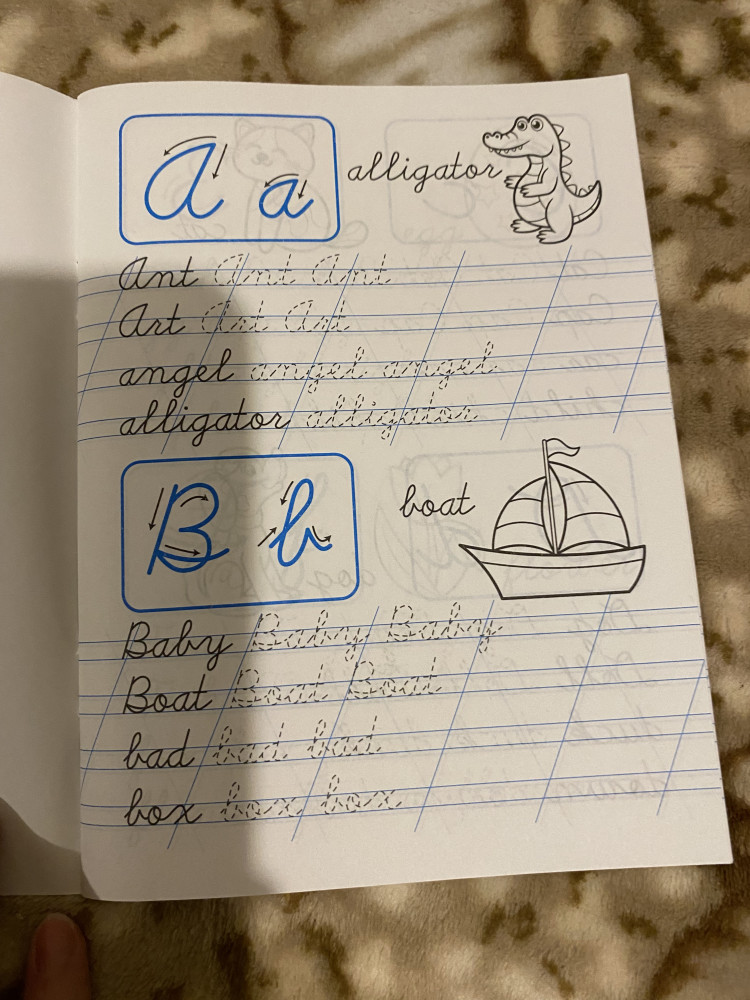 A a
alligator
Ant Ant Ant
Art Art Art
angel angel angel
alligator alligator
B b
boat
Baby Baby Baby
Boat Boat Boat
bad bad bad
box box box